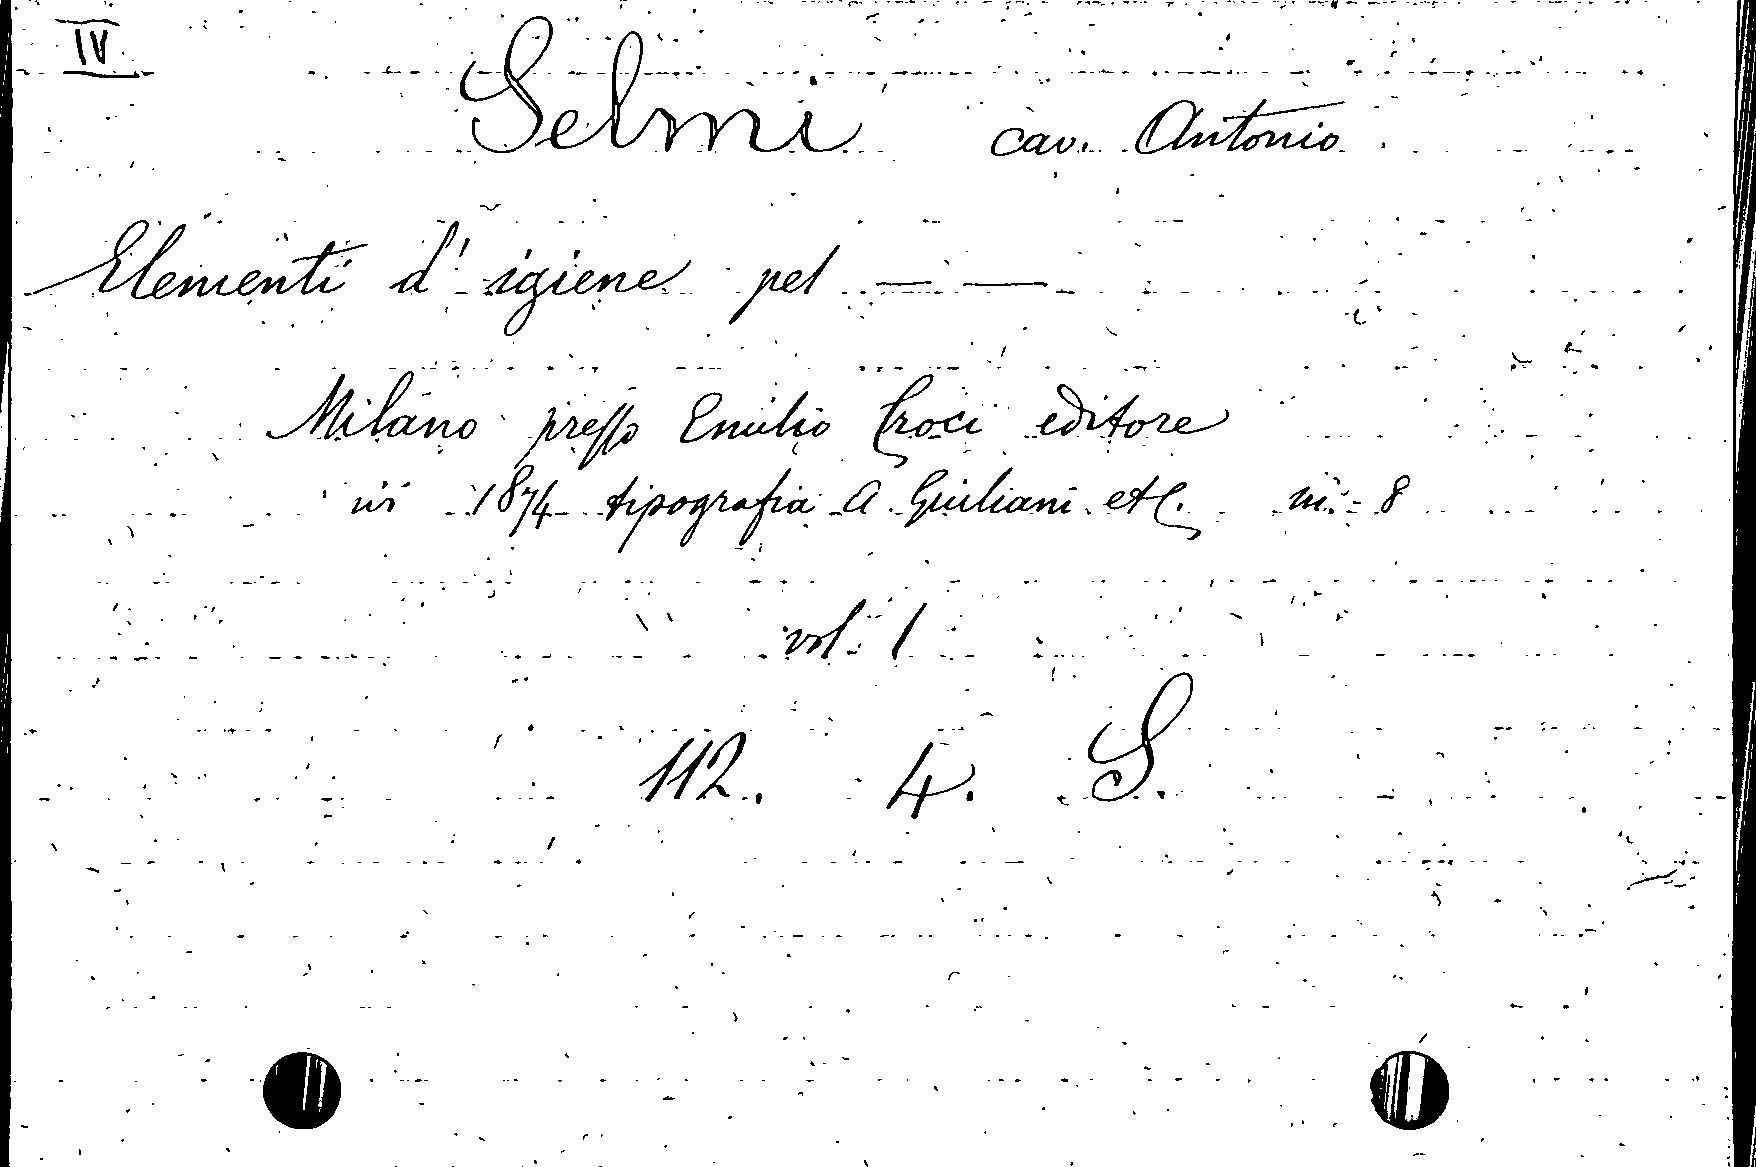 IV
Selmi cav. Antonio
Elementi d' igiene pel — —
Milano presso Emilio Croci editore
in 1874 tipografia A Giuliani e C. in - 8
vol. 1
112. 4. S.